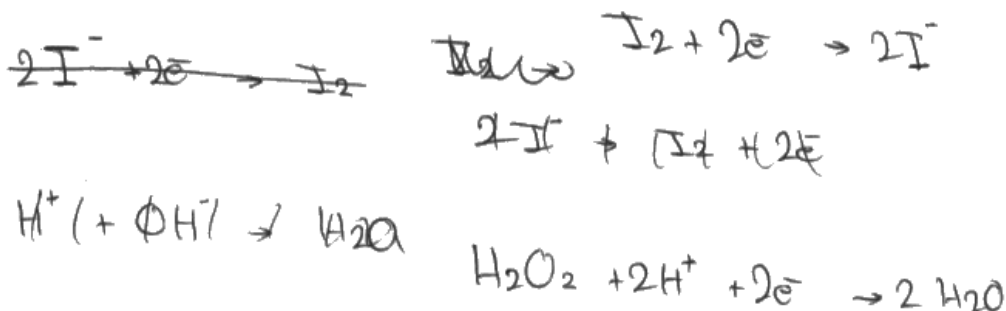 2I⁻ +2ē → I₂
I₂ + 2ē → 2I⁻
2I⁻ → I₂ + 2ē
H⁺ + OH⁻ → H₂O
H₂O₂ +2H⁺ +2ē → 2 H₂O